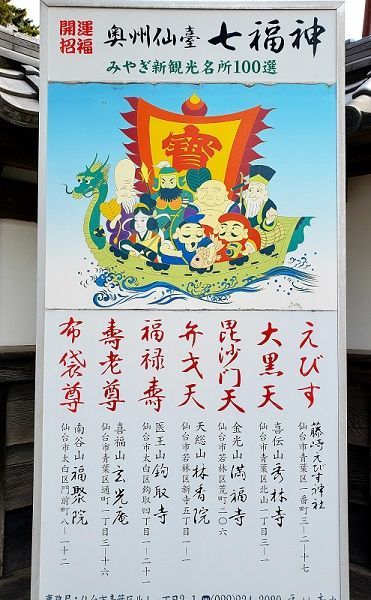 開運
招福
奥州仙臺 七福神
みやぎ新観光名所100選
寶
えびす
藤崎えびす神社
仙台市青葉区一番町三-二-十七
大黒天
喜伝山 秀林寺
仙台市青葉区北山一丁目三-一
毘沙門天
金光山 満福寺
仙台市若林区荒町二〇六
弁才天
天総山 林香院
仙台市若林区新寺五丁目一-一
福禄寿
医王山 鈎取寺
仙台市太白区鈎取四丁目一-十
壽老尊
喜福山 玄光庵
仙台市青葉区通町一丁目三-十六
布袋尊
南谷山 福聚院
仙台市太白区門前町八-十二